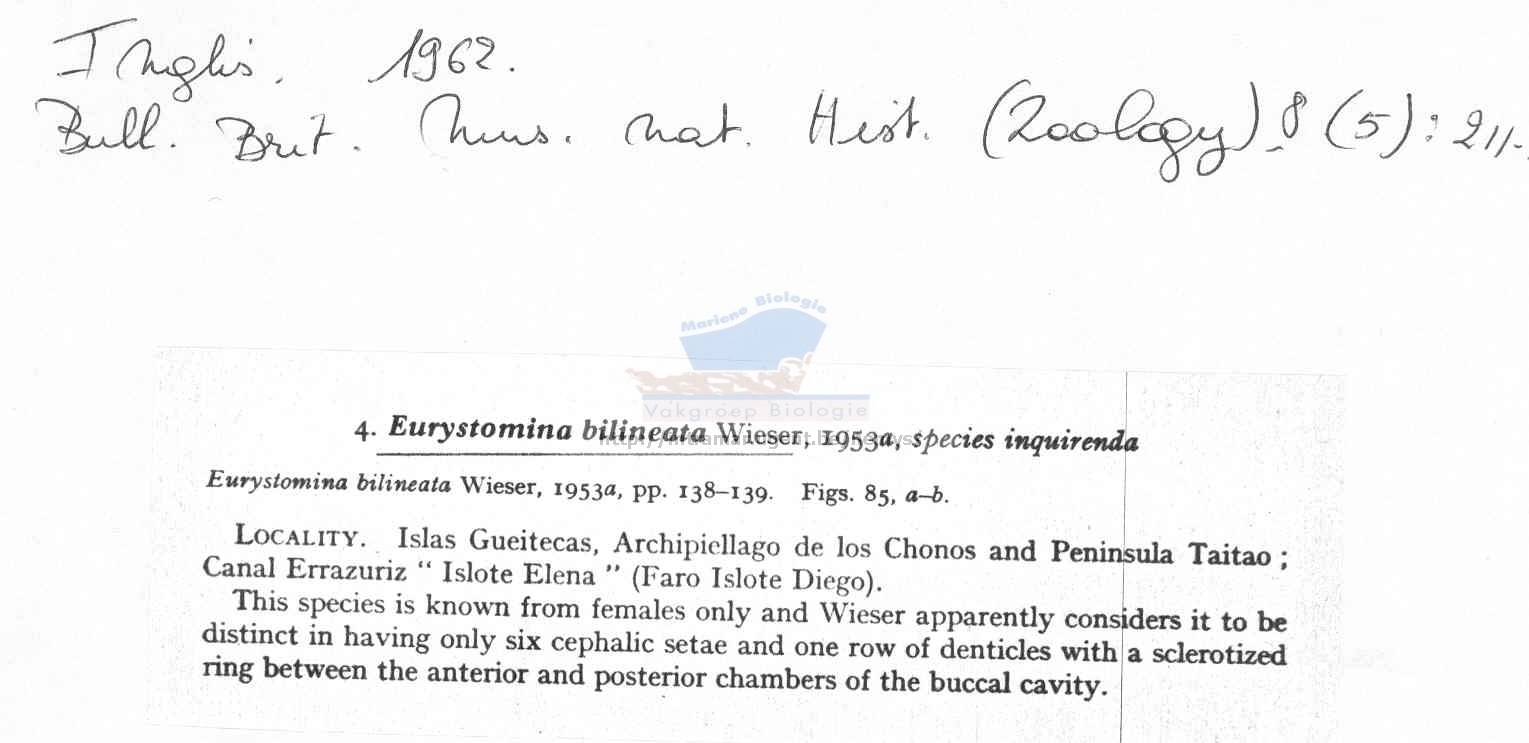 Inglis. 1962.
Bull. Brit. Mus. nat. Hist. (Zoology) 8 (5): 211-
Mariene Biologie
Vakgroep Biologie
4. Eurystomina bilineata Wieser, 1953a, species inquirenda
Eurystomina bilineata Wieser, 1953a, pp. 138–139. Figs. 85, a–b.
LOCALITY. Islas Gueitecas, Archipiellago de los Chonos and Peninsula Taitao ;
Canal Errazuriz “ Islote Elena ” (Faro Islote Diego).
This species is known from females only and Wieser apparently considers it to be
distinct in having only six cephalic setae and one row of denticles with a sclerotized
ring between the anterior and posterior chambers of the buccal cavity.